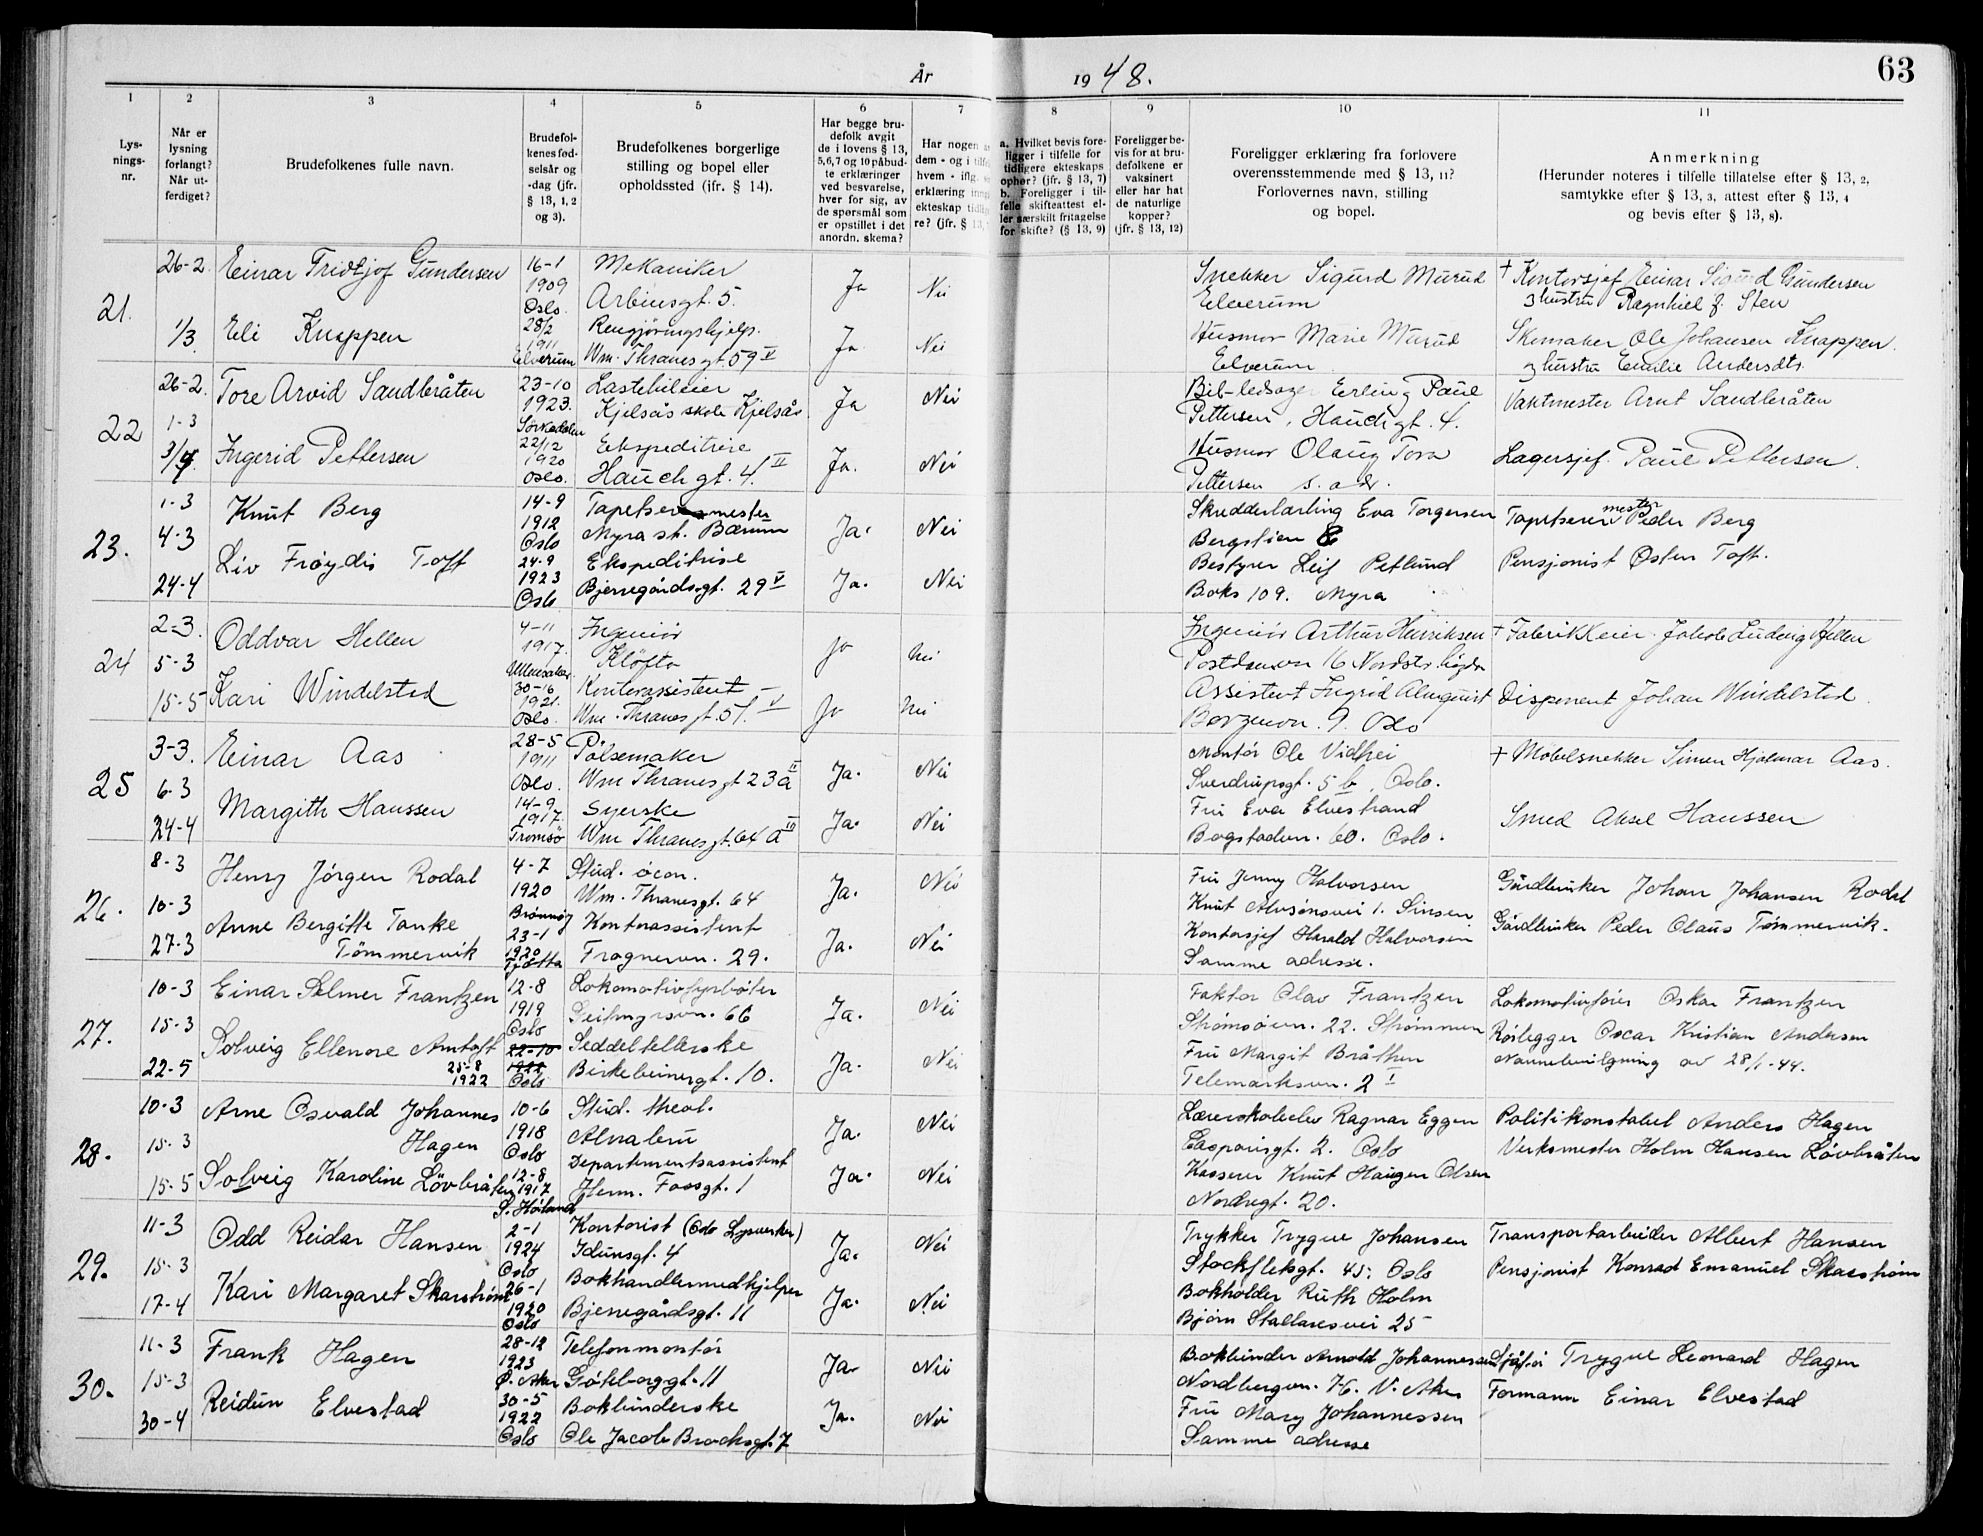 År 1948.
63
1 2 3 4 5 6 7 8 9 10 11
Lysnings-nr.
Når er lysning forlangt? Når utferdiget?
Brudefolkenes fulle navn.
Brudefolkenes fødselsår og -dag (jfr. § 13, 1, 2 og 3).
Brudefolkenes borgerlige stilling og bopel eller opholdssted (jfr. § 14).
Har begge brudefolk avgit de i lovens § 13, 5, 6, 7 og 10 påbudte erklæringer ved besvarelse, hver for sig, av de spørsmål som er opstillet i det anordn. skema?
Har nogen dem - og i hvem - iflg. erklæring ekteskap re? (jfr. § 13,
a. Hvilket bevis foreligger i tilfelle for tidligere ekteskaps ophør? (jfr. § 13, 7) b. Foreligger i tilfelle skifteattest eller særskilt fritagelse for skifte? (§ 13, 9)
Foreligger bevis for at brudefolkene er vaksinert eller har hat de naturlige kopper? (jfr. § 13, 12)
Foreligger erklæring fra forlovere overensstemmende med § 13, 11? Forlovernes navn, stilling og bopel.
Anmerkning (Herunder noteres i tilfelle tillatelse efter § 13, 2, samtykke efter § 13, 3, attest efter § 13, 4 og bevis efter § 13, 8).
21.
26-2. Einar Fridtjof Gundersen 16-1 1909 Oslo. Mekaniker Arbinsgt. 5. Ja Nei
Snekker Sigurd Murud Elverum
† Kontorsjef Einar Sigurd Gundersen og hustru Ragnhild f. Sten
1/3 Eli Knappen 28/2 1911 Elverum Rengjøringshjelp. Wm. Thranesgt 59 V Ja Nei
Husmor Marie Murud Elverum
Skomaker Ole Johansen Knappen. og hustru Emilie Andersdtr.
22
26-2. Tore Arvid Sandbråten 23-10 1923. Sørkedalen Lastebileier Kjelsås skole Kjelsås Ja Nei
Bil-ledsager Erling Paul Pettersen, Hauchgt. 4.
Vaktmester Arnt Sandbråten
1-3
3/4 Ingerid Pettersen 22/12 1920 Oslo. Ekspeditrise Hauchgt. 4 II Ja. Nei
Husmor Olaug Tora Pettersen s. adr.
Lagersjef. Paul Pettersen.
23.
1-3 Knut Berg 14-9 1912 Oslo Tapetsermester Myra st. Bærum Ja. Nei
Skredderlærling Eva Torgersen Bergstien
Tapetserermester Peder Berg
4-3
24-4 Liv Frøydis Toft 24-9 1923 Oslo Ekspeditrise Bjerregårdsgt. 29 V Ja. Nei
Bestyrer Leif Petlund Boks 109. Myra
Pensjonist Østen Toft.
24
2-3. Oddvar Hellen 4-11 1917. Ullensaker Ingeniør Kløfta Ja Nei
Ingeniør Arthur Henriksen 16 Nordstr.høgda
† Fabrikkeier Jakob Ludvig Hellen
5-3
15-5 Kari Windelstad 30-16 1921. Oslo. Kontorassistent Wm. Thranesgt. 51. V Ja Nei
Assistent Ingrid Almquist 9. Oslo
Disponent Johan Windelstad.
25
3-3. Einar Aas 28-5 1911 Oslo. Pølsemaker Wm Thranesgt 23 a II Ja. Nei
Montør Ole Vidhei Sverdrupsgt. 5 b, Oslo.
† Møbelsnekker Simen Hjalmar Aas.
6-3
24-4 Margith Hanssen 14-9 1917. Tromsø Syerske Wm Thranesgt. 64 a III Ja. Nei
Fru Eva Elvestrand Bogstadvn. 60. Oslo.
Smed Aksel Hanssen
26.
8-3 Henry Jørgen Rodal 4-7 1920 Brønnøy Stud. øcon. Wm. Thranesgt. 64 Ja. Nei
Fru Jenny Halvorsen Knut Alvsønsvei 1. Sinsen
Gårdbruker Johan Johansen Rodal
10-3
27-3 Anne Bergitte Tanke Tømmervik 23-1 1920 Tjøtta Kontorassistent Frognervn. 29. Ja. Nei
Kontorsjef Harald Halvorsen Samme adresse.
Gårdbruker Peder Olaus Tømmervik.
27.
10-3 Einar Selmer Frantzen 12-8 1919 Oslo Lokomotivfyrbøter 66 Ja. Nei
Faktor Olav Frantzen Strømsvn. 22. Strømmen
Lokomotivfører Oskar Frantzen
15-3
22-5 Solveig Ellenore Amtoft 25-8 1922 22-10 1922 Oslo Seddeltellerske Birkebeinergt. 10. Ja. Nei
Fru Margit Bråthen Telemarksvn. 2 I
Rørlegger Oscar Kristian Andersen Navnebevilgning av 28/1-44.
28.
10-3 Arne Osvald Johannes Hagen 10-6 1918 Oslo Stud. theol. Alnabru Ja. Nei
Lærerskoleelev Ragnar Eggen Casparisgt. 2. Oslo
Politikonstabel Anders Hagen
15-3
15-5 Solveig Karoline Løvbråten 12-8 1917 S. Høland Departementsassistent Herm. Fossgt. 1 Ja. Nei
Kasserer Knut Haugen Olsen Nordregt. 20.
Verksmester Holm Hansen Løvbråten
29.
11-3 Odd Reidar Hansen 2-1 1924 Oslo Kontorist (Oslo Lysverker) Idunsgt. 4 Ja. Nei
Trykker Trygve Johansen Stockfletsgt. 45. Oslo
Transportarbeider Albert Hansen
15-3
17-4 Kari Margaret Skarstrøm 26-1 1920 Oslo Bokhandlermedhjelper Bjerregårdsgt. 11 Ja. Nei
Bokholder Ruth Holm Bjørn Stallaresvei 25
Pensjonist Konrad Emanuel Skarstrøm
30.
11-3 Frank Hagen 28-12 1923 Ø. Aker Telefonmontør Gøteborggt. 11 Ja. Nei
Bokbinder Arnold Johannessen Nordbergvn. 76. V. Aker
Sjåfør Trygve Leonard Hagen
15-3
30-4 Reidun Elvestad 30-5 1922 Oslo Bokbinderske Ole Jacob Brochsgt. 7 Ja. Nei
Fru Mary Johannessen Samme adresse
Formann Einar Elvestad